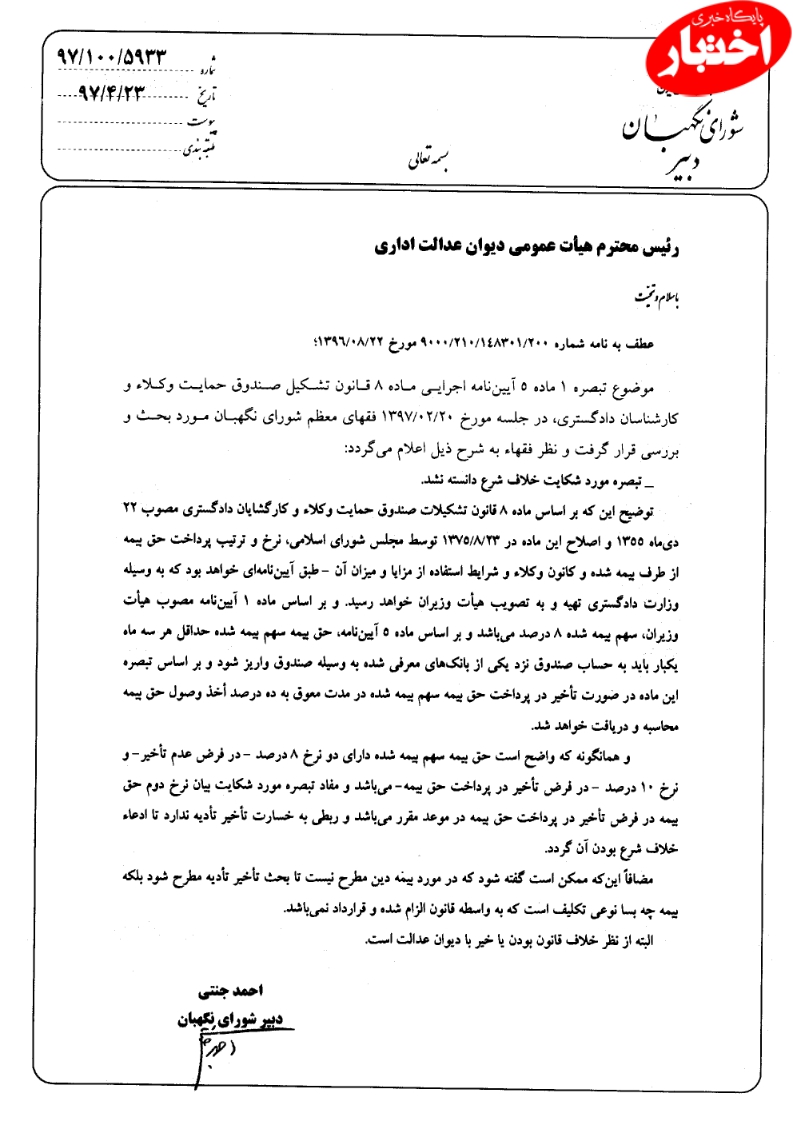 پایگاه خبری
اختبار
شماره ۹۷/۱۰۰/۵۹۳۳
تاریخ ۹۷/۴/۲۳
پیوست
طبقه‌بندی
شورای نگهبان
دبیر
بسمه تعالی
رئیس محترم هیأت عمومی دیوان عدالت اداری
با سلام و تحیّت
عطف به نامه شماره ۹۰۰۰/۲۱۰/۱۴۸۳۰۱/۲۰۰ مورخ ۱۳۹۶/۰۸/۲۲؛
موضوع تبصره ۱ ماده ۵ آیین‌نامه اجرایی ماده ۸ قانون تشکیل صندوق حمایت وکلاء و
کارشناسان دادگستری، در جلسه مورخ ۱۳۹۷/۰۲/۲۰ فقهای معظم شورای نگهبان مورد بحث و
بررسی قرار گرفت و نظر فقهاء به شرح ذیل اعلام می‌گردد:
_ تبصره مورد شکایت خلاف شرع دانسته نشد.
توضیح این که بر اساس ماده ۸ قانون تشکیلات صندوق حمایت وکلاء و کارگشایان دادگستری مصوب ۲۲
دی‌ماه ۱۳۵۵ و اصلاح این ماده در ۱۳۷۵/۸/۲۳ توسط مجلس شورای اسلامی، نرخ و ترتیب پرداخت حق بیمه
از طرف بیمه شده و کانون وکلاء و شرایط استفاده از مزایا و میزان آن -طبق آیین‌نامه‌ای خواهد بود که به وسیله
وزارت دادگستری تهیه و به تصویب هیأت وزیران خواهد رسید. و بر اساس ماده ۱ آیین‌نامه مصوب هیأت
وزیران، سهم بیمه شده ۸ درصد می‌باشد و بر اساس ماده ۵ آیین‌نامه، حق بیمه سهم بیمه شده حداقل هر سه ماه
یکبار باید به حساب صندوق نزد یکی از بانک‌های معرفی شده به وسیله صندوق واریز شود و بر اساس تبصره
این ماده در صورت تأخیر در پرداخت حق بیمه سهم بیمه شده در مدت معوق به ده درصد أخذ وصول حق بیمه
محاسبه و دریافت خواهد شد.
و همانگونه که واضح است حق بیمه سهم بیمه شده دارای دو نرخ ۸ درصد -در فرض عدم تأخیر- و
نرخ ۱۰ درصد -در فرض تأخیر در پرداخت حق بیمه- می‌باشد و مفاد تبصره مورد شکایت بیان نرخ دوم حق
بیمه در فرض تأخیر در پرداخت حق بیمه در موعد مقرر می‌باشد و ربطی به خسارت تأخیر تأدیه ندارد تا ادعاء
خلاف شرع بودن آن گردد.
مضافاً این‌که ممکن است گفته شود که در مورد بیمه دین مطرح نیست تا بحث تأخیر تأدیه مطرح شود بلکه
بیمه چه بسا نوعی تکلیف است که به واسطه قانون الزام شده و قرارداد نمی‌باشد.
البته از نظر خلاف قانون بودن یا خیر با دیوان عدالت است.
احمد جنتی
دبیر شورای نگهبان